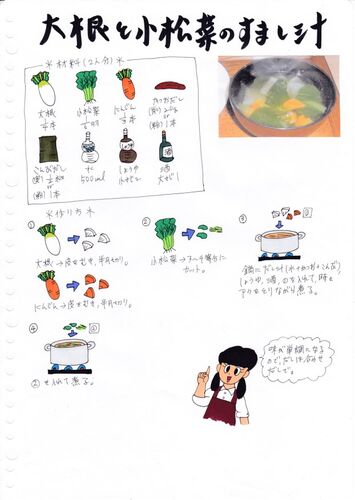 大根と小松菜のすまし汁
＊材料(2人分)＊
大根
小松菜
にんじん
かつおだし
1本
こんぶだし
水
500ml
しょうゆ
酒
大さじ1
＊作り方＊
①
大根→皮をむき、半月切り。
にんじん→皮をむき、半月切り。
②
小松菜→3〜4等分に
カット。
③
鍋にだし汁(水+かつお+こんぶ)、
しょうゆ、酒、①を入れて、時々
アクをとりながら煮る。
④
②を入れて煮る。
味が単調になる
ので、だしは合わせ
だしで。